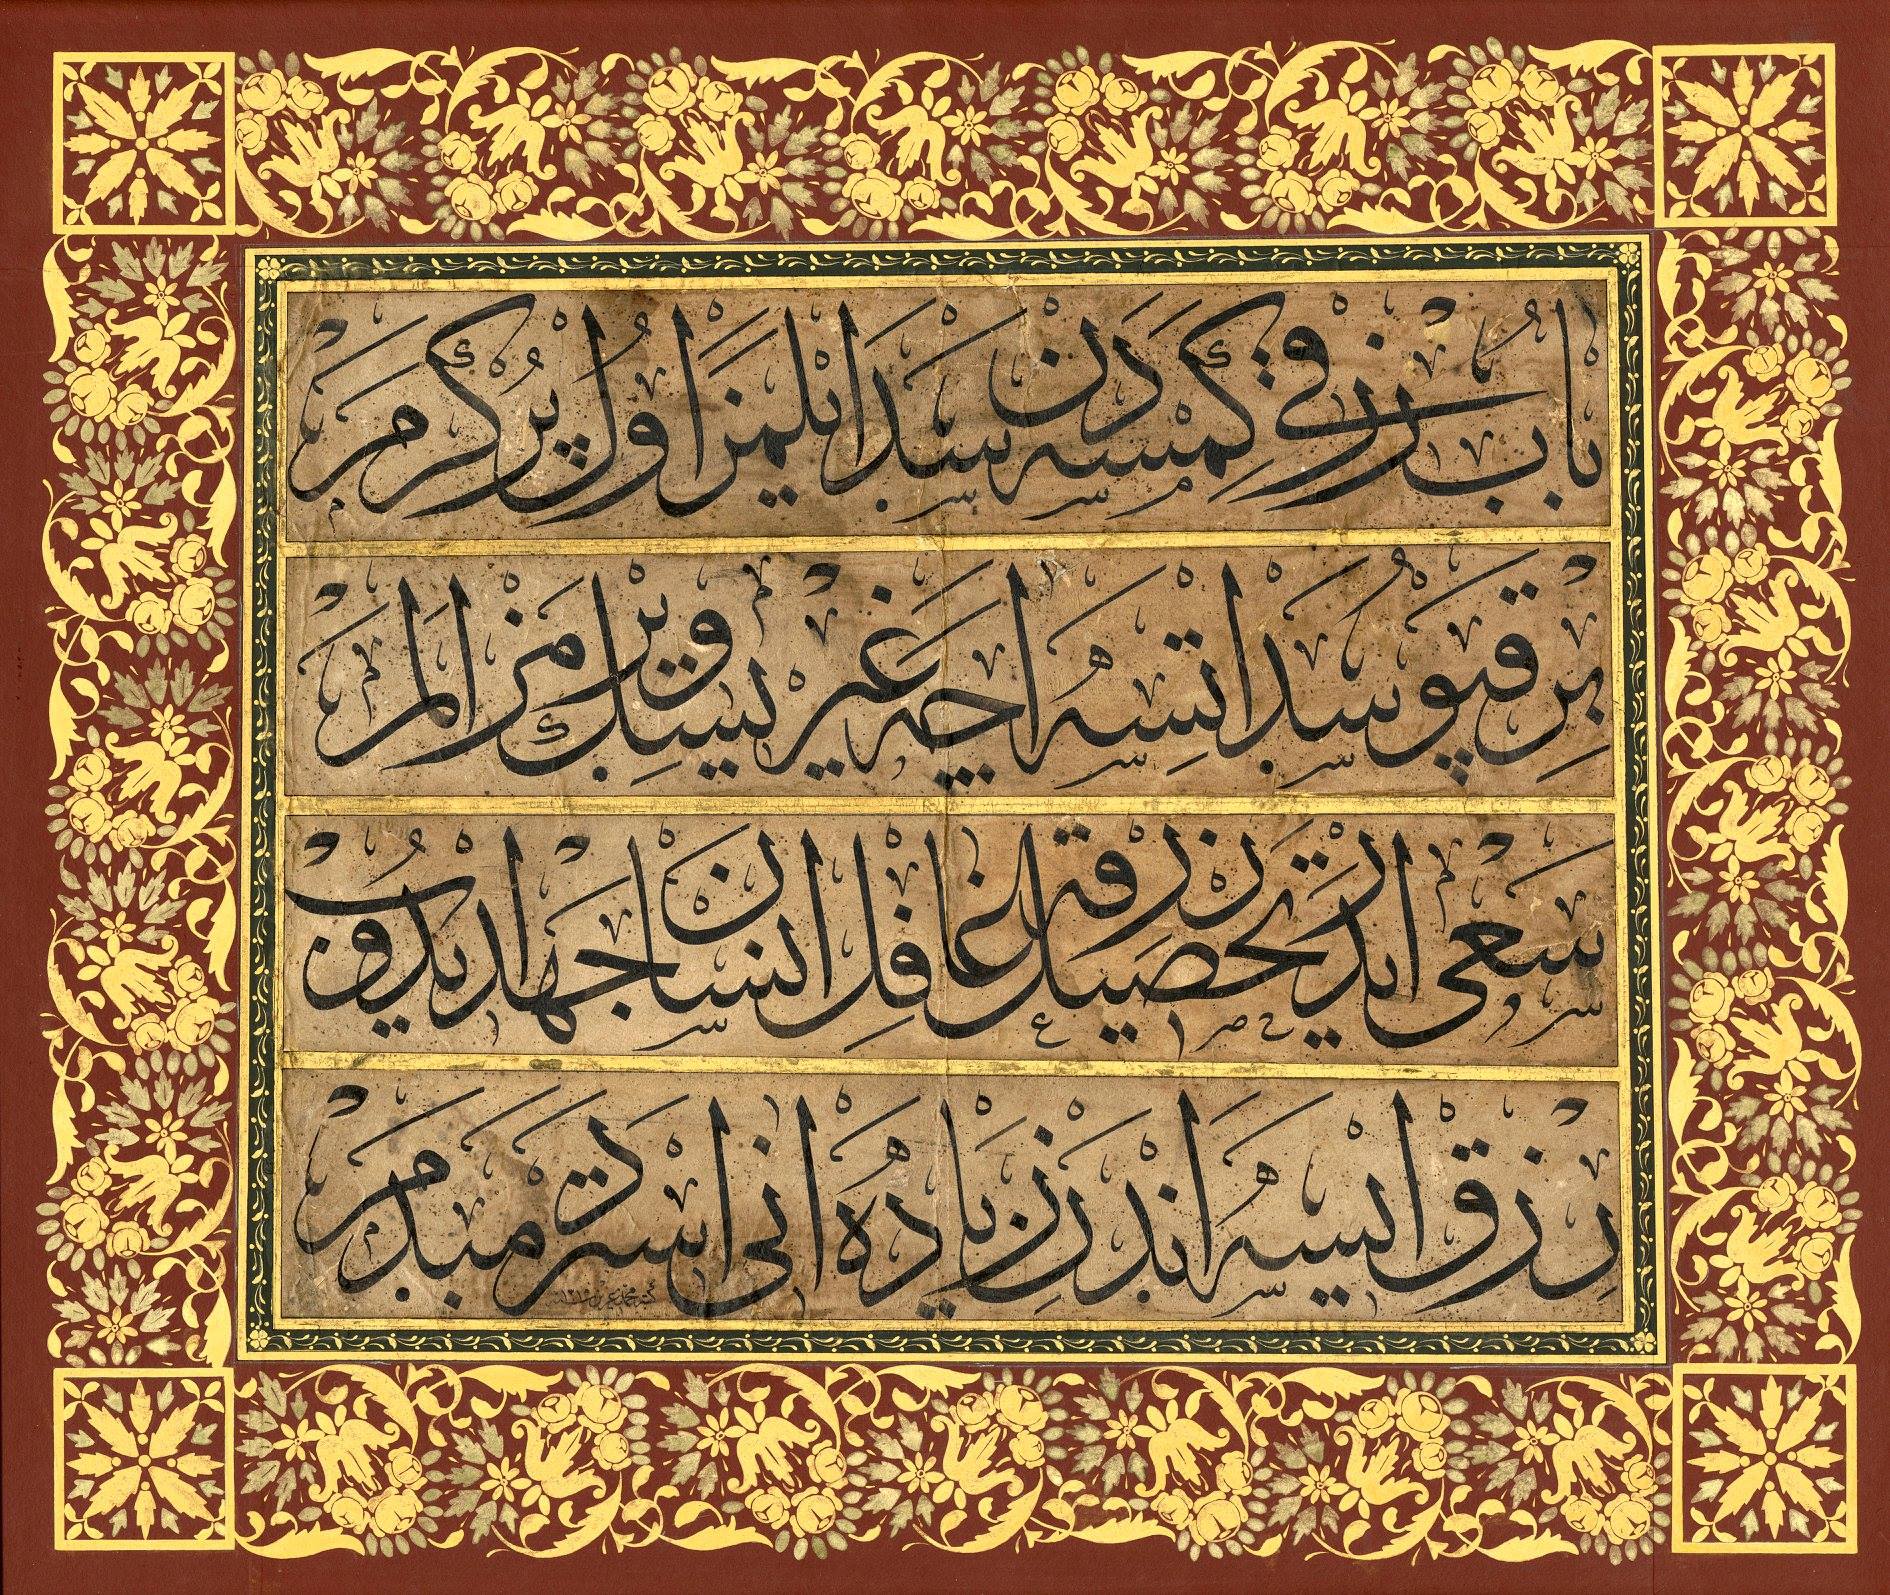 باب رزقی کمسه دن سد ایلمز اول پر کرم
بر قپو سد اتسه اچه غیریسك ویرمز الم
سعی ایدر تحصیل رزقه غافل انسان جهد ایدوب
رزق ایسه اندن زیاده انی استر دمبدم